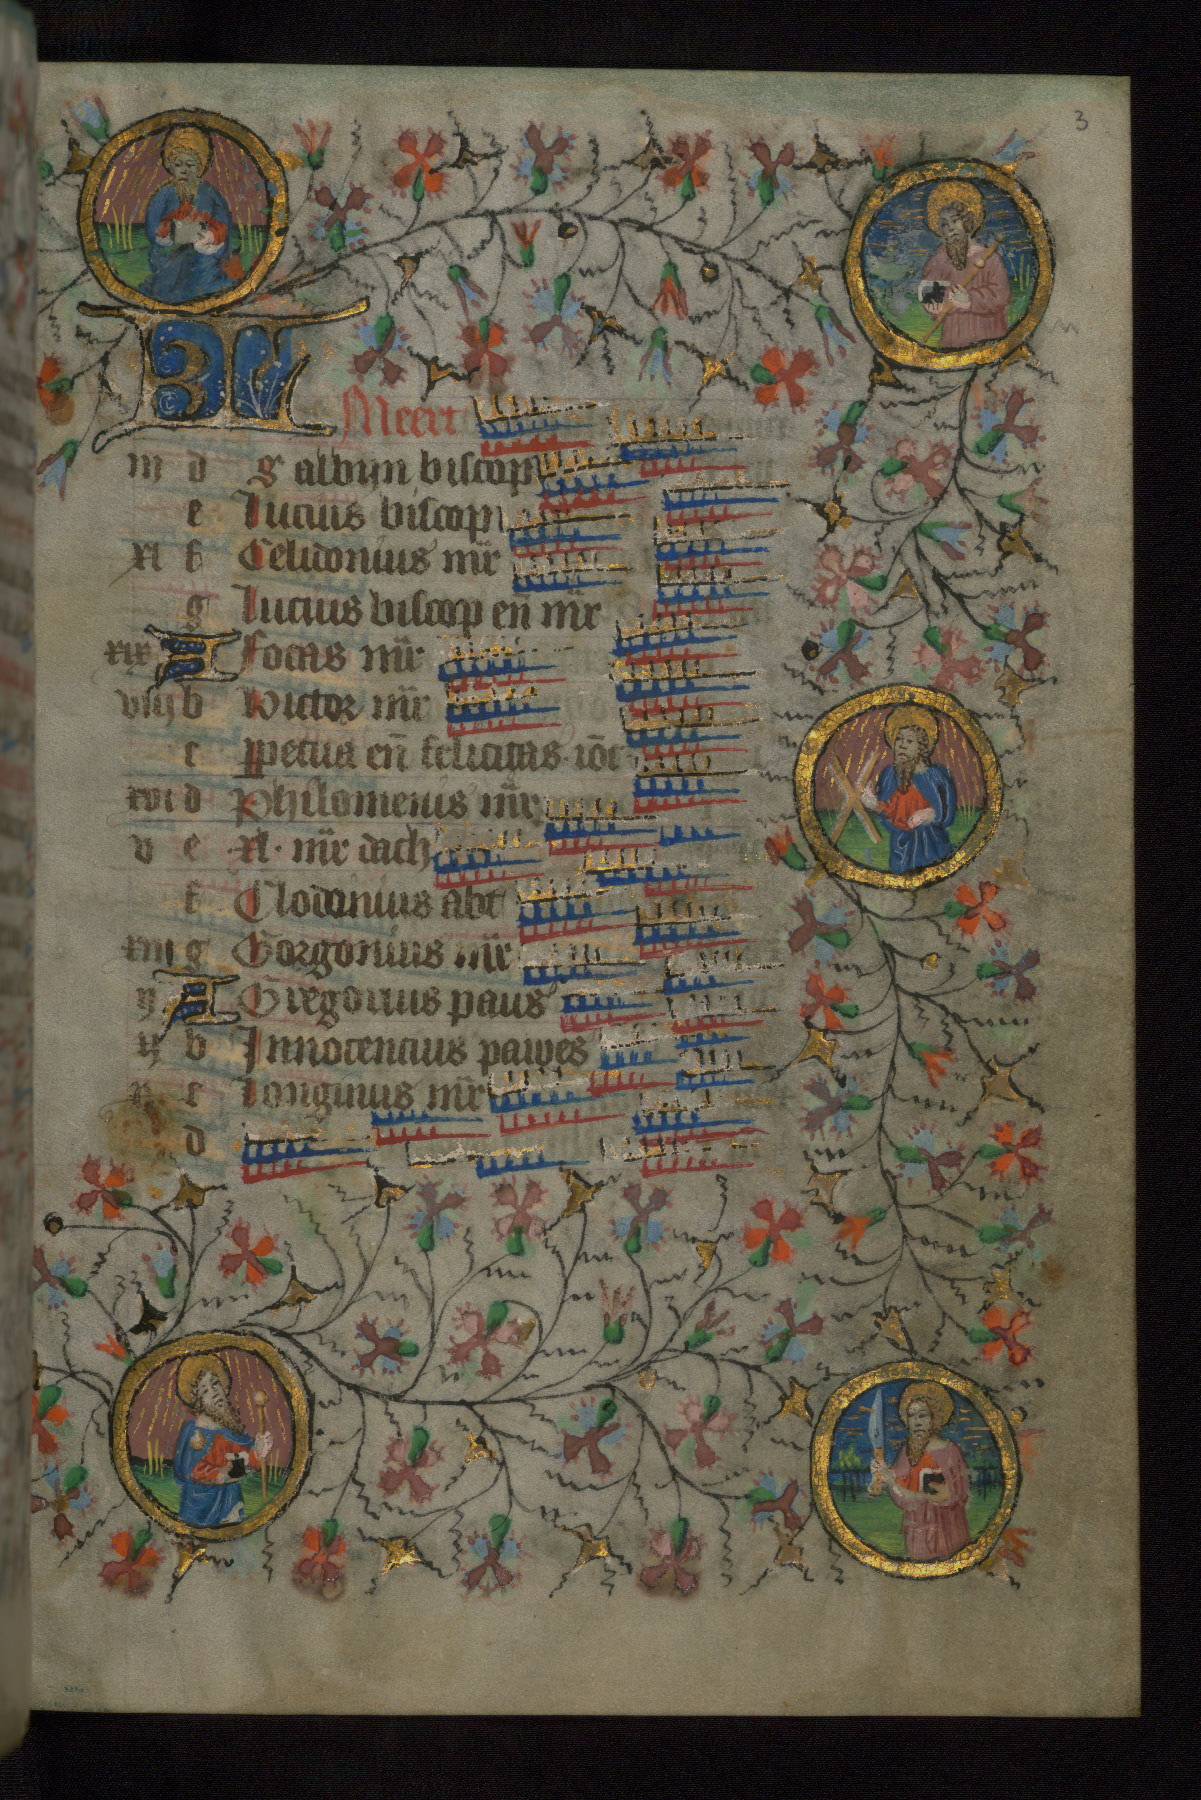 3
KL Meert
iii d S albijn biscop
e Lucius biscop
xi f Celidonius mr̄
g Lucius biscop en̄ mr̄
xix A Focas mr̄
viij b Victor mr̄
c Ꝑpetua en̄ felicitas
xvi d Philomenus mr̄
v e xl. mr̄ dach
f Clodoinius abt
xiii g Gorgonius mr̄
ij A Gregorius paus
b Innocencius pawes
c Longinus mr̄
d